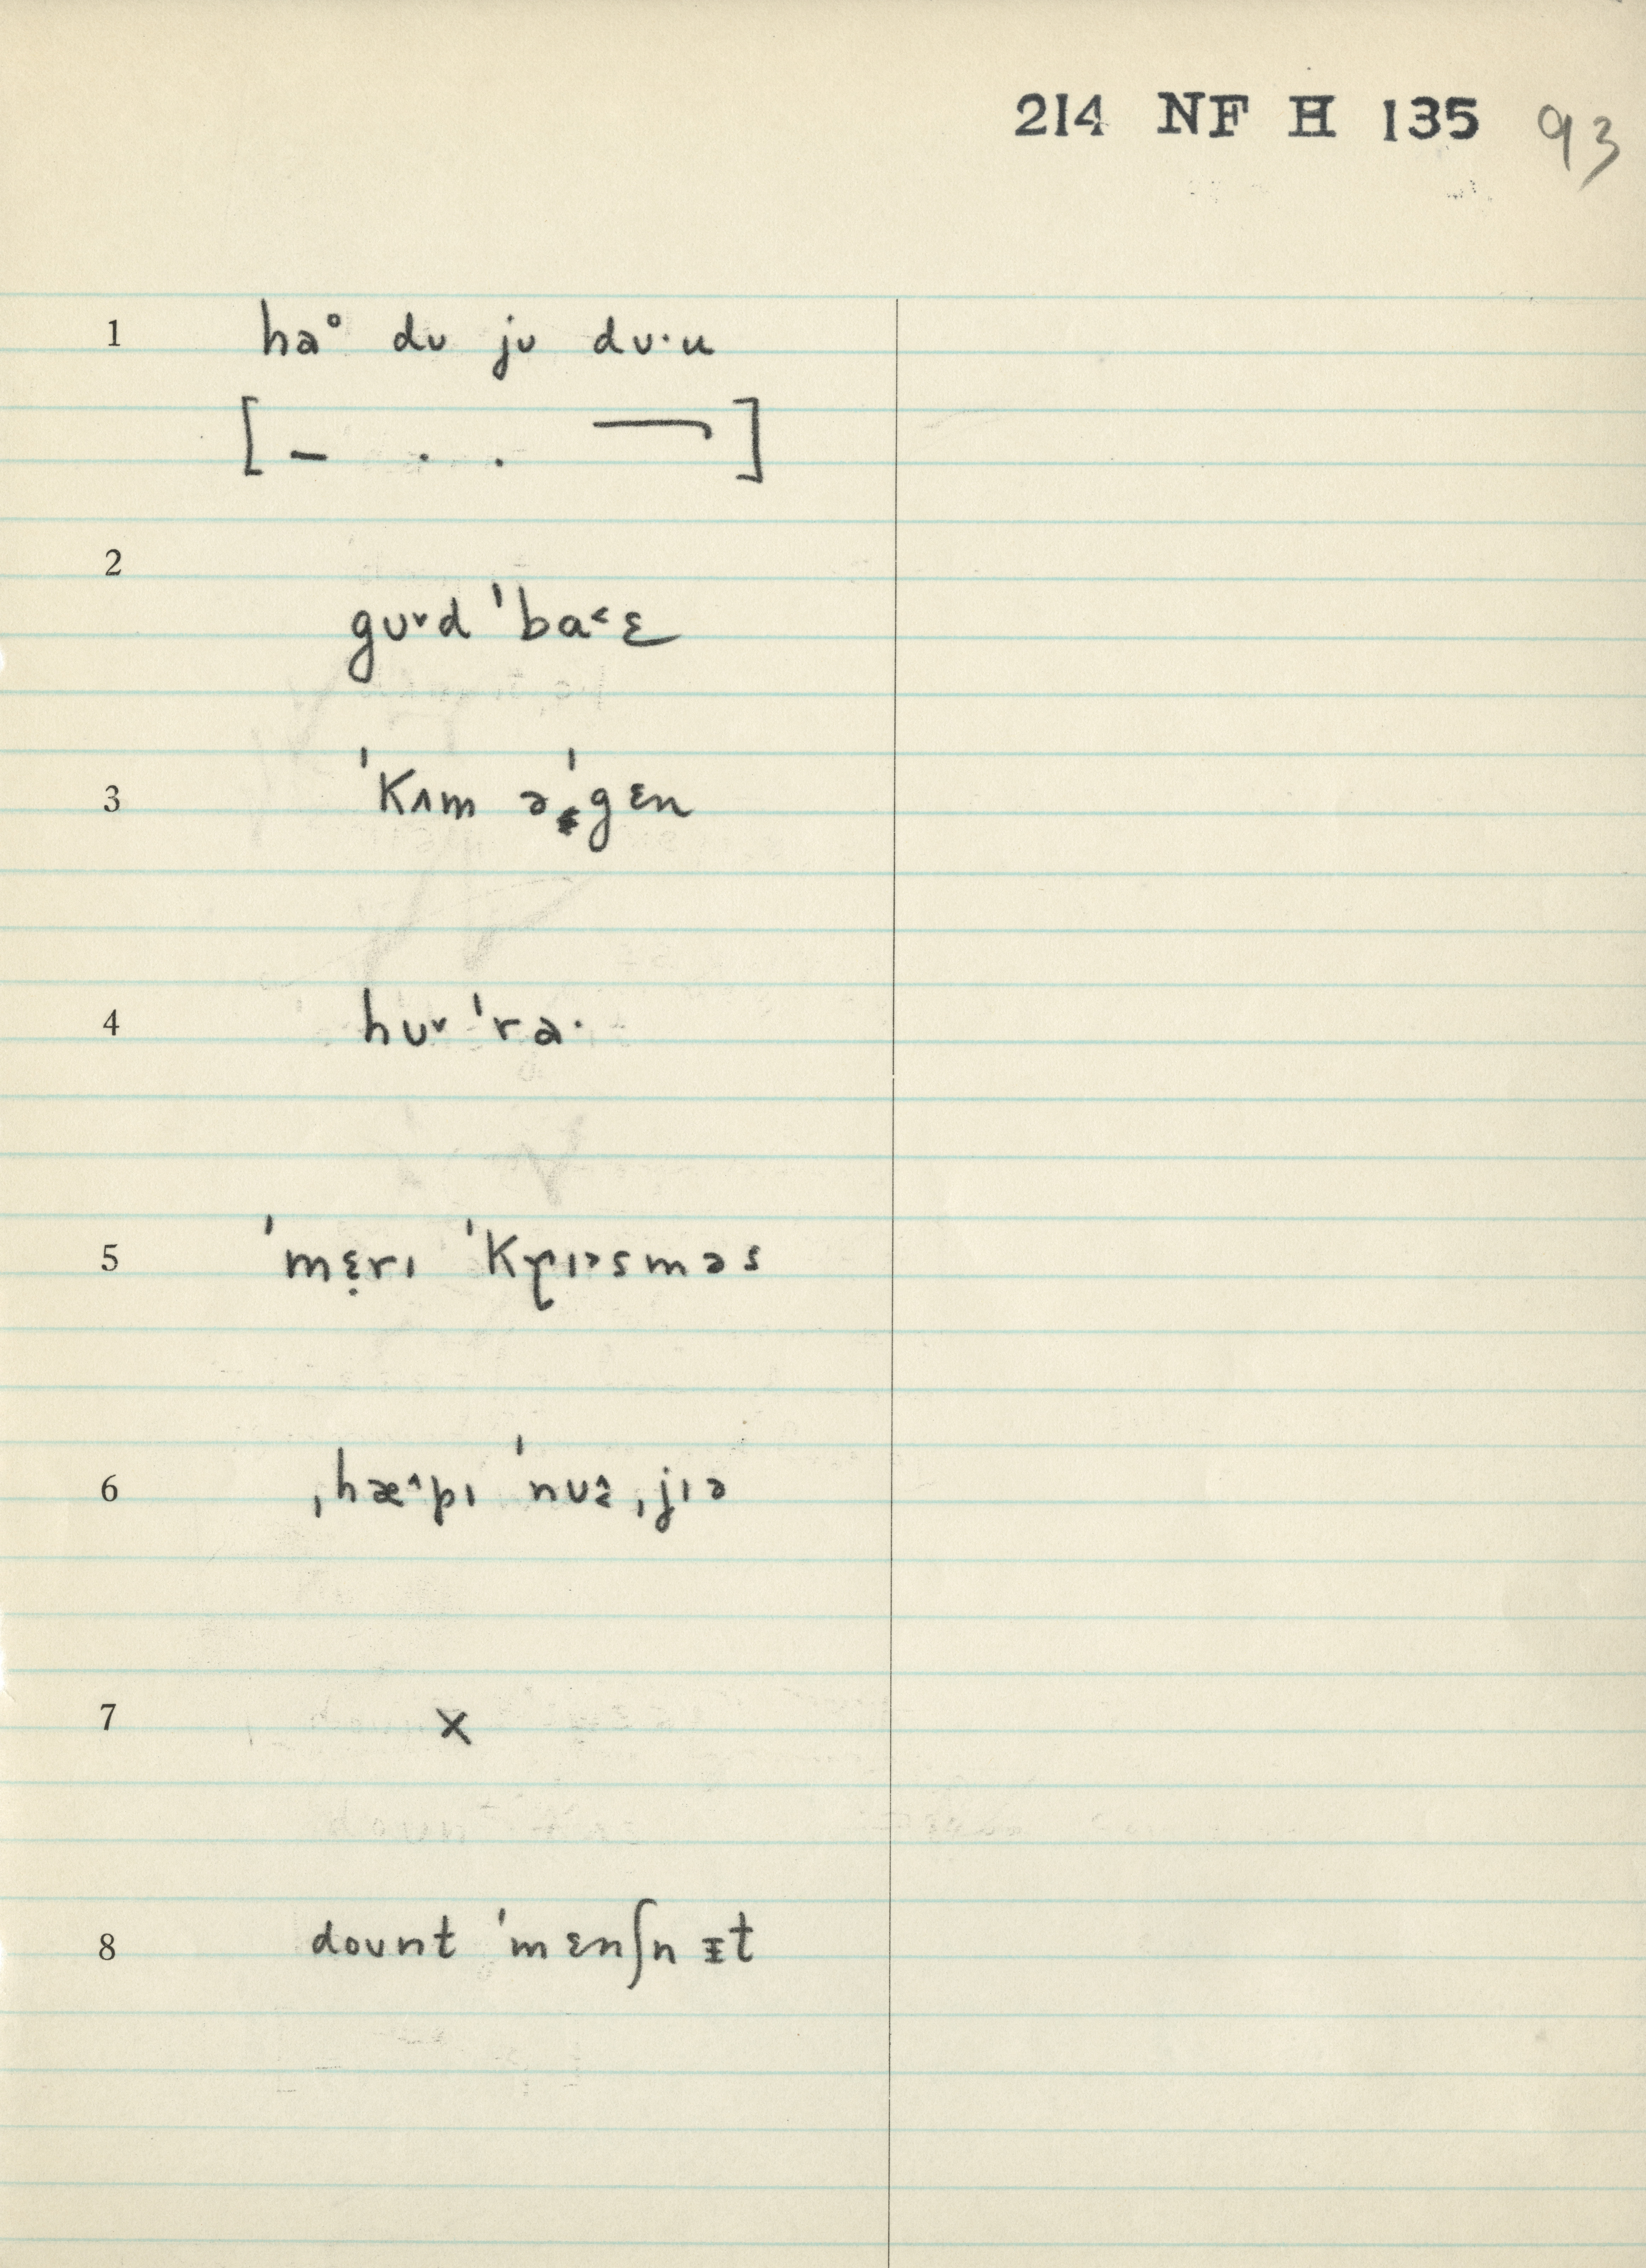 214 NF H 135 93
1 haᵒ dʊ jʊ dʊ·u
[– . . ¬]
2
gʊ˅d ˈba˂ɛ
3 ˈkʌm əˈgɛn
4 hʊ˅ ˈra·
5 ˈmɛ̣rɪ ˈkɽɪᵊsməs
6 ˌhæ˄pɪ ˈnʊᵾ ˌjɪə
7 x
8 doʊnt ˈmɛnʃn ɪt